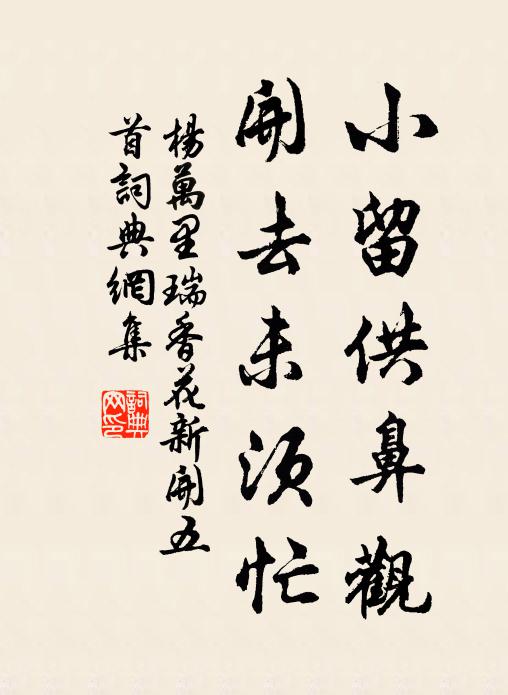 小留供鼻觀
開去未須忙
楊萬里瑞香花新開五
首詞典網集
詞典
网印